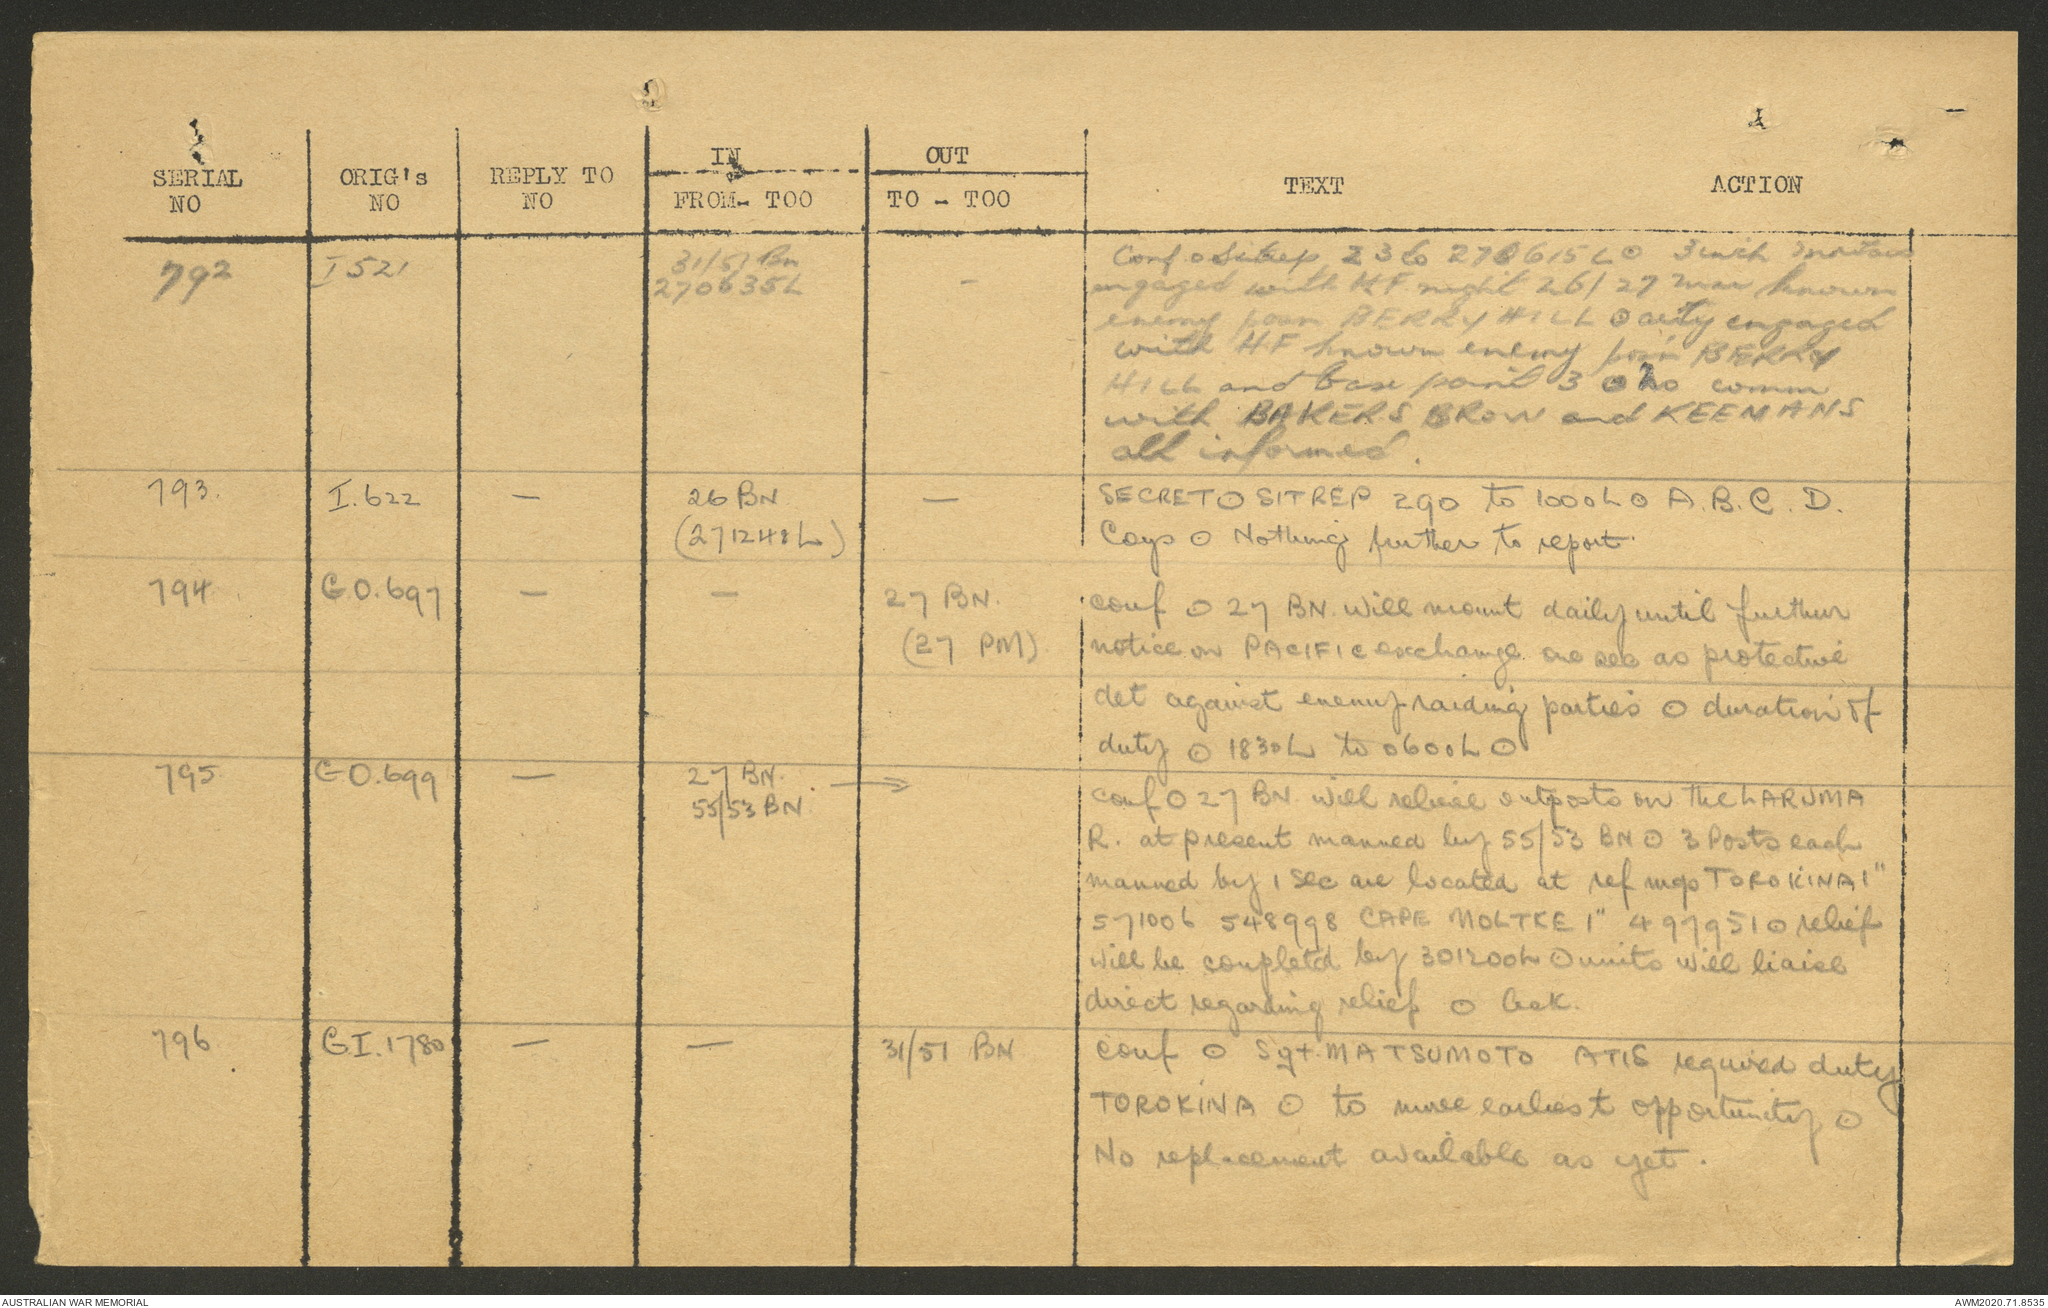 SERIAL NO
ORIG's NO
REPLY TO NO
IN
FROM- TOO
OUT
TO - TOO
TEXT
ACTION
792
I 521
31/51 Bn
270635L
-
Conf o Sitrep 236 270615L O 3 inch mortars
engaged with HF night 26/27 mar known
enemy posn BERRY HILL O arty engaged
with HF known enemy posn BERRY
HILL and base point 3 O no comm
with BAKERS BROW and KEENANS
all informed.
793.
I.622
-
26 BN
(271248L)
-
SECRET O SITREP 290 to 1000L O A.B.C.D.
Coys O Nothing further to report.
794
GO.697
-
-
27 BN.
(27 PM)
conf O 27 BN. will mount daily until further
notice on PACIFIC exchange one sec as protective
det against enemy raiding parties O duration of
duty O 1830L to 0600L O
795
GO.699
-
27 BN.
55/53 BN.
→
conf O 27 BN will relieve outposts on the LARUMA
R. at present manned by 55/53 BN O 3 Posts each
manned by 1 Sec are located at ref mgs TOROKINA 1"
571006 548998 CAPE MOLTKE 1" 497951 O relief
will be completed by 301200L O units will liaise
direct regarding relief O Ack.
796
GI.1780
-
-
31/51 BN
conf O Sgt. MATSUMOTO ATIS required duty
TOROKINA O to move earliest opportunity O
No replacement available as yet.
AUSTRALIAN WAR MEMORIAL
AWM2020.71.8535